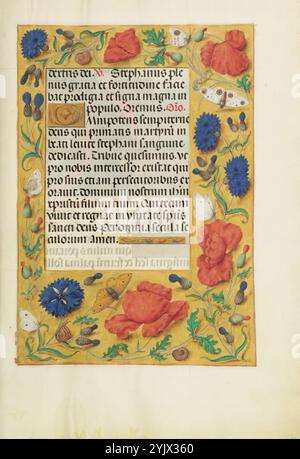 dextris dei. V. Stephanus ple
nus gratia et fortitudine facie
bat prodigia et signa magna in
populo. Oremus. Oro.
Omnipotens sempiterne
deus qui primitias martirii in
beati levite stephani sanguine
dedicasti. Tribue quesumus. ut
pro nobis intercessor existat qui
pro suis etiam persecutoribus ex
oravit. Dominum nostrum ihm
xpristum filium tuum. Qui tecum
vivit et regnat in unitate spiri
sancti deus per omnia secula se
culorum amen.
alamy
Image ID: 2YJX360
www.alamy.com